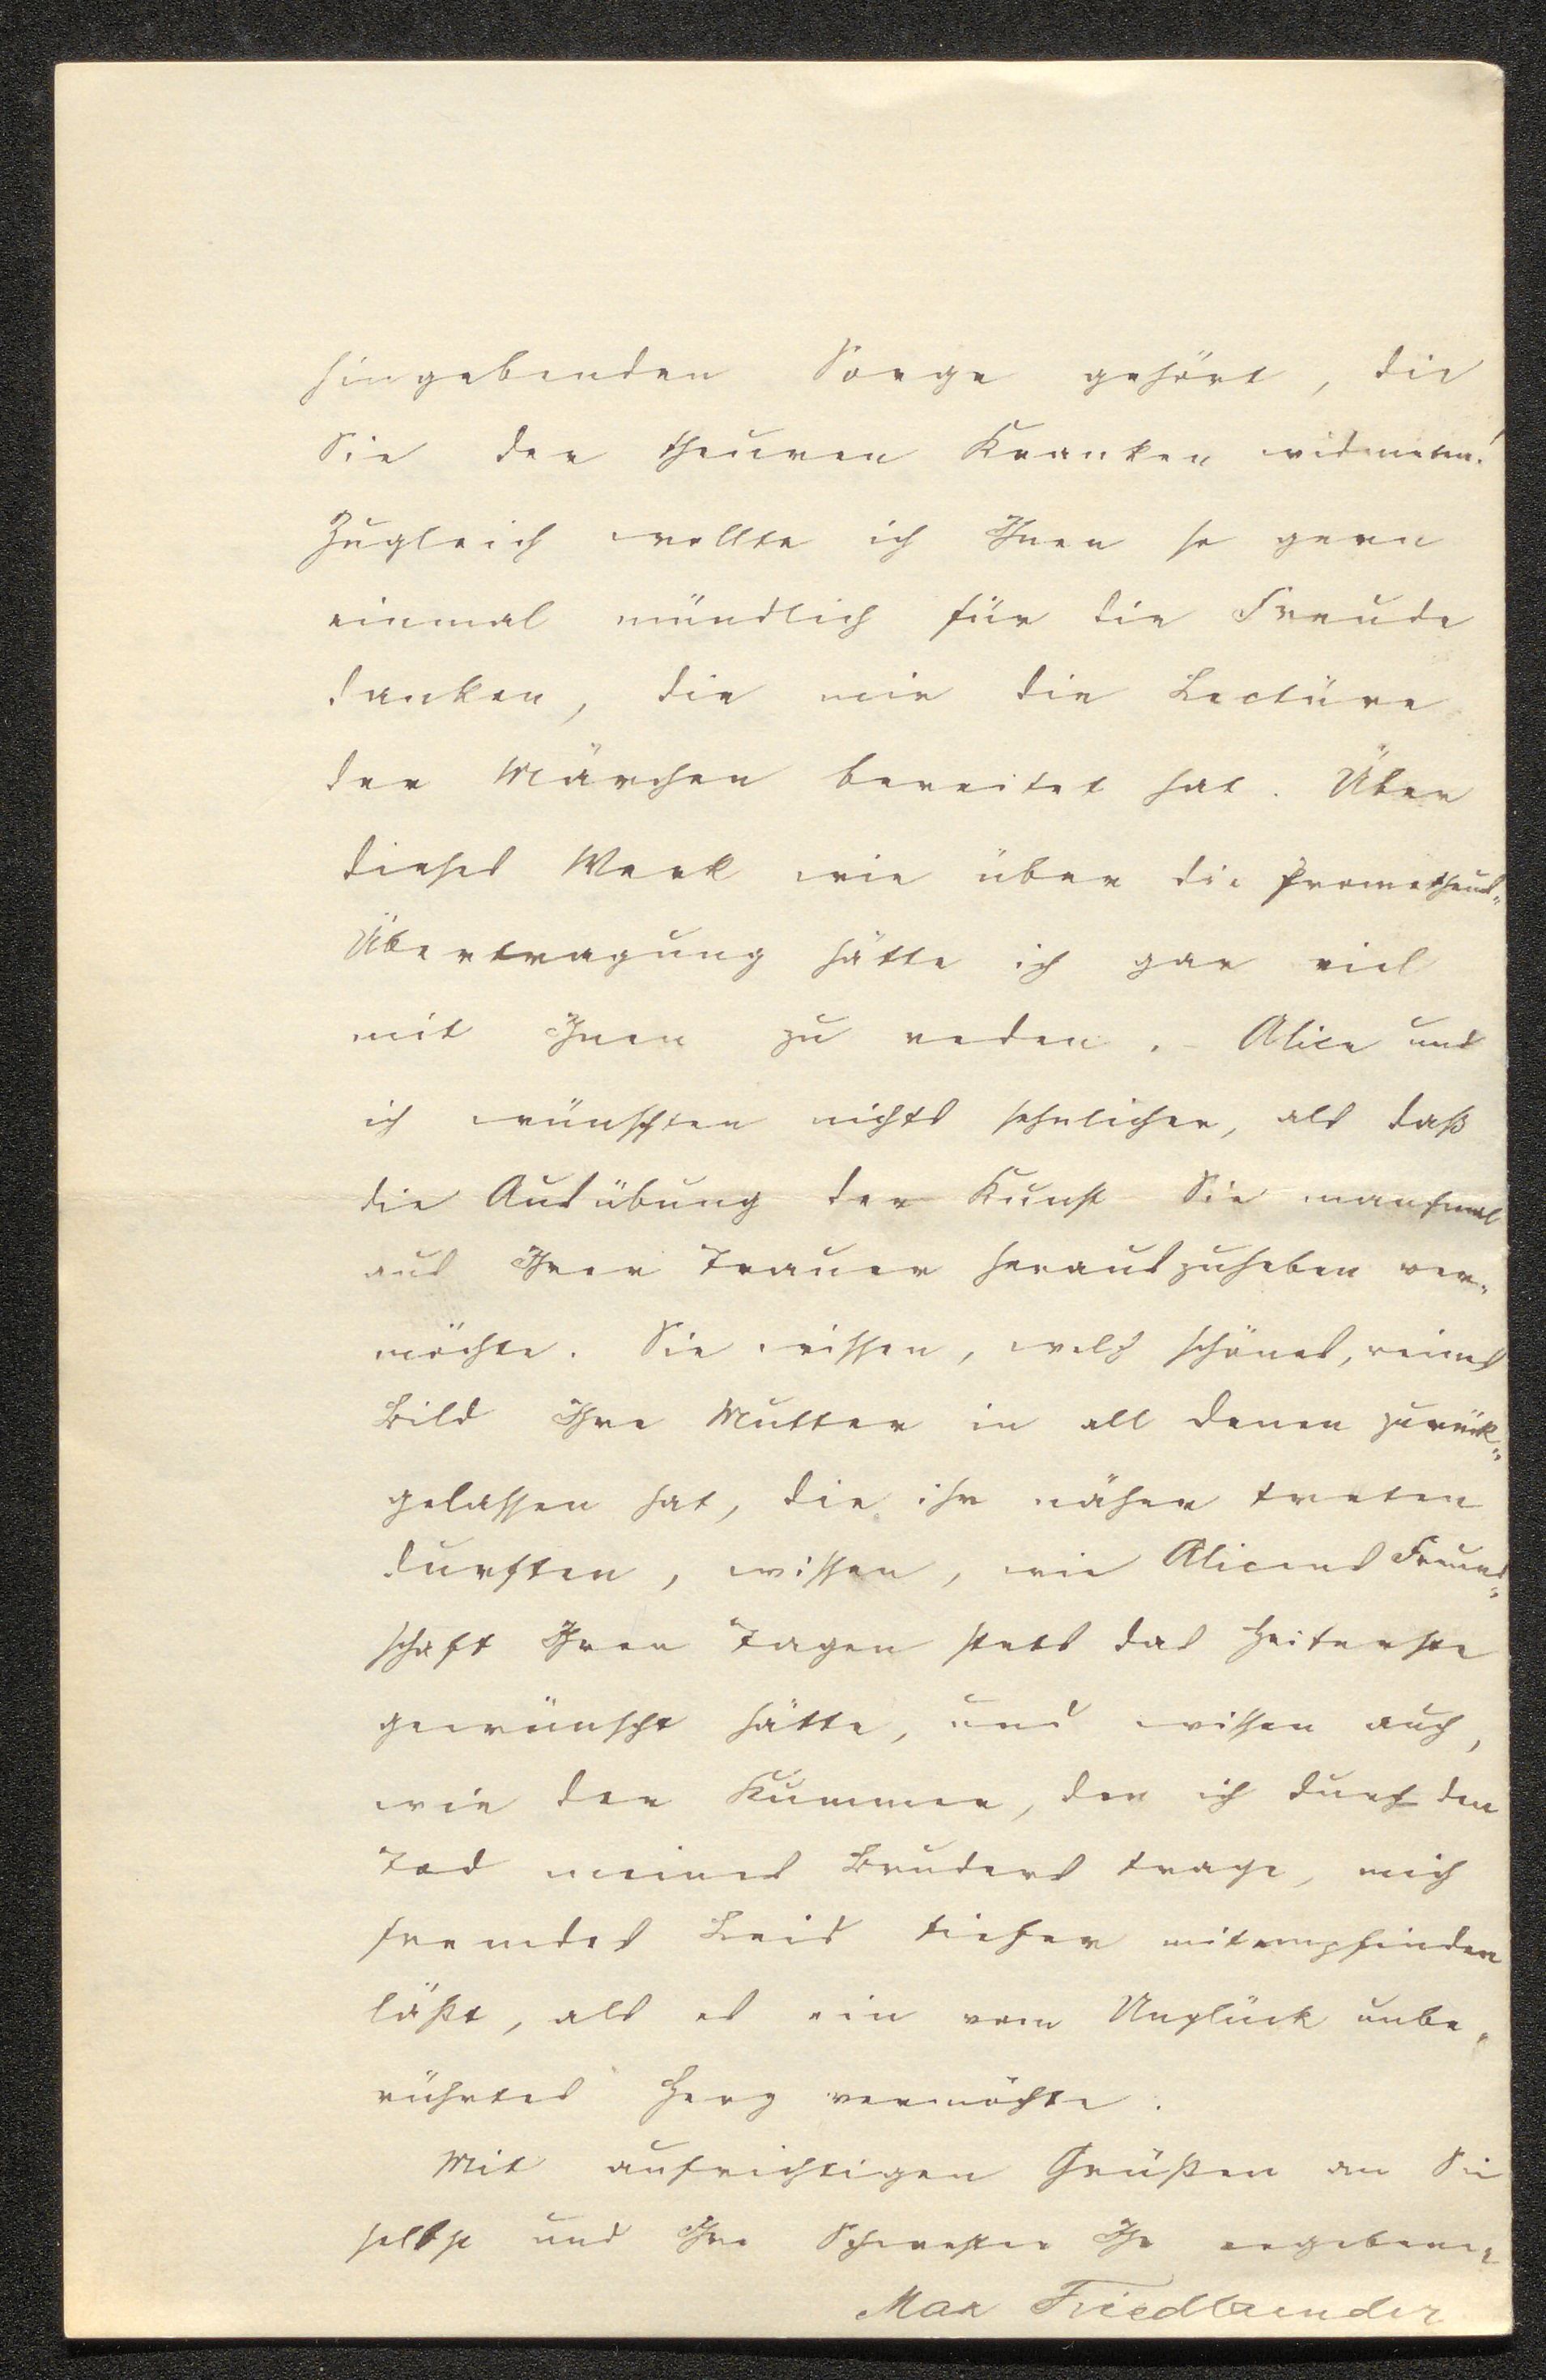 hingebenden Sorge gehört, die
Sie der theuren Kranken widmeten!
Zugleich wollte ich Ihnen so gern
einmal mündlich für die Freude
danken, die mir die Lectüre
der Märchen bereitet hat. Über
dieses Werk wie über die Prometheus-
Übertragung hätte ich gar viel
mit Ihnen zu reden. – Alice und
ich wünschten nichts sehnlicher, als daß
die Ausübung der Kunst Sie manchmal
aus Ihrer Trauer herauszuheben ver-
möchte. Sie wissen, welch schönes, reines
Bild Ihre Mutter in all denen zurück-
gelassen hat, die ihr näher treten
durften, wissen, wie Alicens Freund-
schaft Ihren Tagen stets das Heiterste
gewünscht hätte, und wissen auch,
wie der Kummer, den ich durch den
Tod meines Bruders trage, mich
fremdes Leid tiefer mitempfinden
läßt, als es ein vom Unglück unbe-
rührtes Herz vermöchte.
Mit aufrichtigen Grüßen an Sie
selbst und Ihre Schwester Ihr ergebener
Max Friedlaender